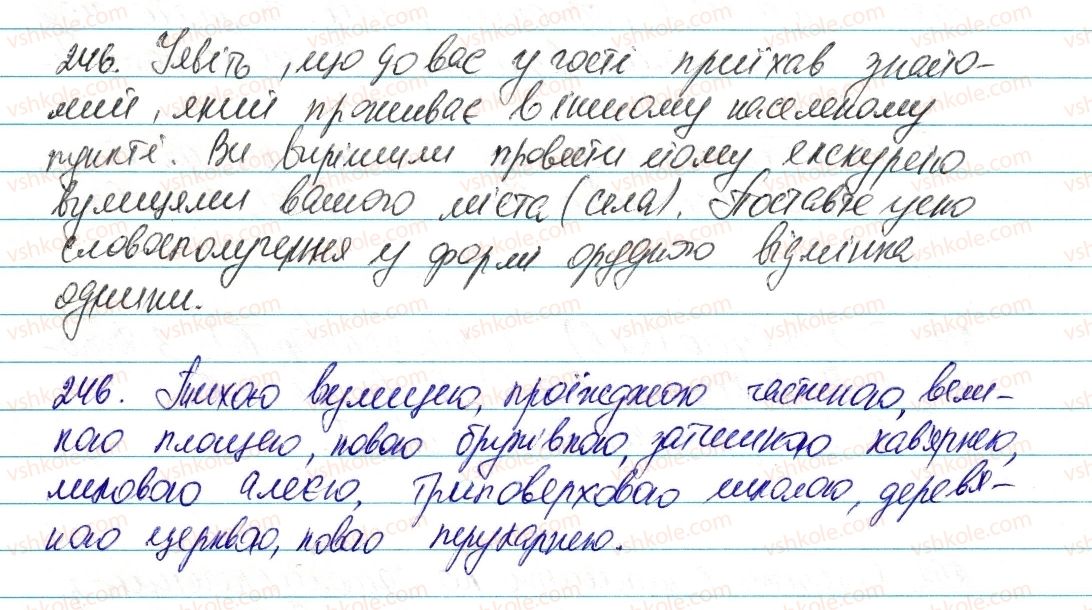 246. Уявіть, що до вас у гості приїхав знайо-
мий, який проживає в іншому населеному
пункті. Ви вирішили провести йому екскурсію
вулицями вашого міста (села). Поставте усно
словосполучення у формі орудного відмінка
однини.
246. Тихою вулицею, проїжджою частиною, вели-
кою площею, новою бруківкою, затишною кав'ярнею,
липовою алеєю, триповерховою школою, дерев'я-
ною церквою, новою перукарнею.